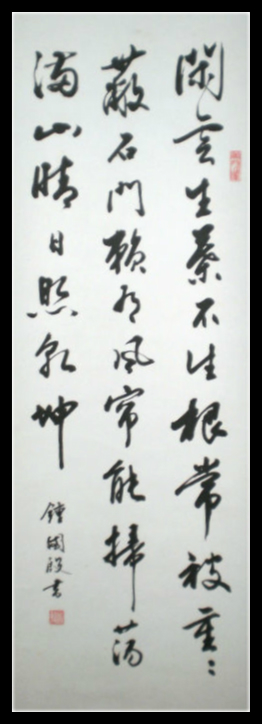 閑雲生葉不生根常被重〻
蔽石門賴有風帘能掃蕩
滿山晴日照乾坤
書